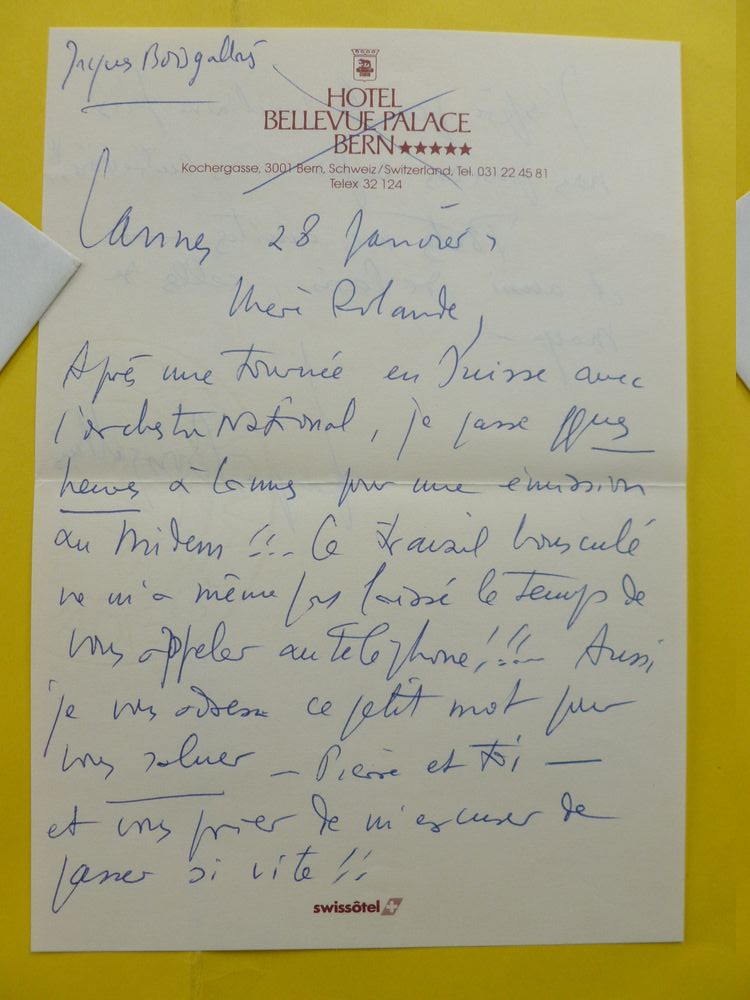 Jacques Boisgallais
HOTEL
BELLEVUE PALACE
BERN ★★★★★
Kochergasse, 3001 Bern, Schweiz/Switzerland, Tel. 031 22 45 81
Telex 32 124
Cannes 28 Janvier
Chère Rolande,
Après une tournée en Suisse avec
l'orchestre National, je passe qques
heures à Cannes pour une émission
au Midem !!... Ce travail bousculé
ne m'a même pas laissé le temps de
vous appeler au téléphone !!!... Aussi,
je vous adresse ce petit mot pour
vous saluer — Pierre et toi —
et vous prier de m'excuser de
passer si vite !!
swissôtel